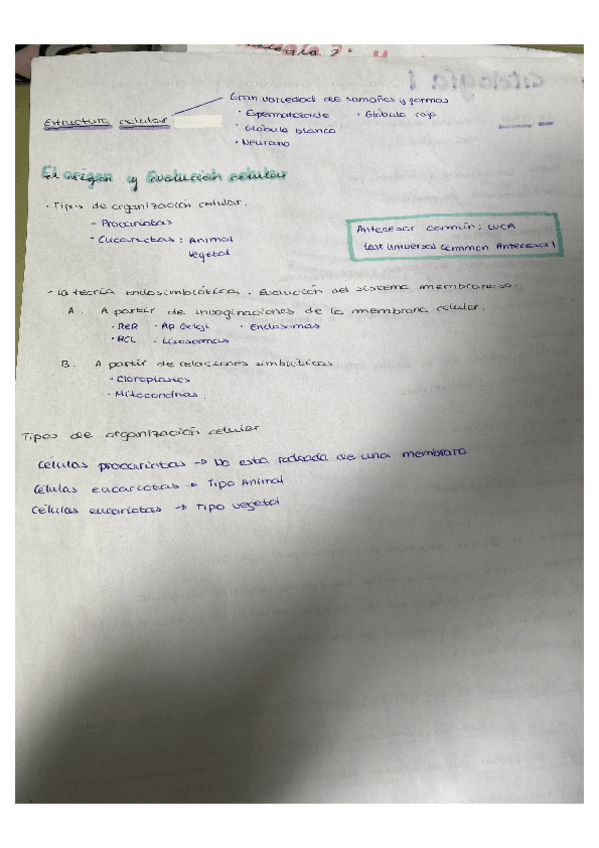 Gran variedad de tamaños y formas
Estructura celular
· Espermatozoide · Glóbulo rojo
· Glóbulo blanco
· Neurona
El origen y Evolución celular
· Tipos de organización celular.
- Procariotas
- Eucariotas : Animal
Vegetal
Antecesor común: LUCA
last universal common Antecesor
- La teoría endosimbiótica. Evolución del sistema membranoso.
A. A partir de invaginaciones de la membrana celular.
· RER · Ap Golgi · Endosomas
· REL · Lisosomas
B. A partir de relaciones simbióticas
· Cloroplastos
· Mitocondrias.
Tipos de organización celular
Células procariotas → No esta rodeada de una membrana.
Células eucariotas → Tipo Animal
Células eucariotas → Tipo vegetal